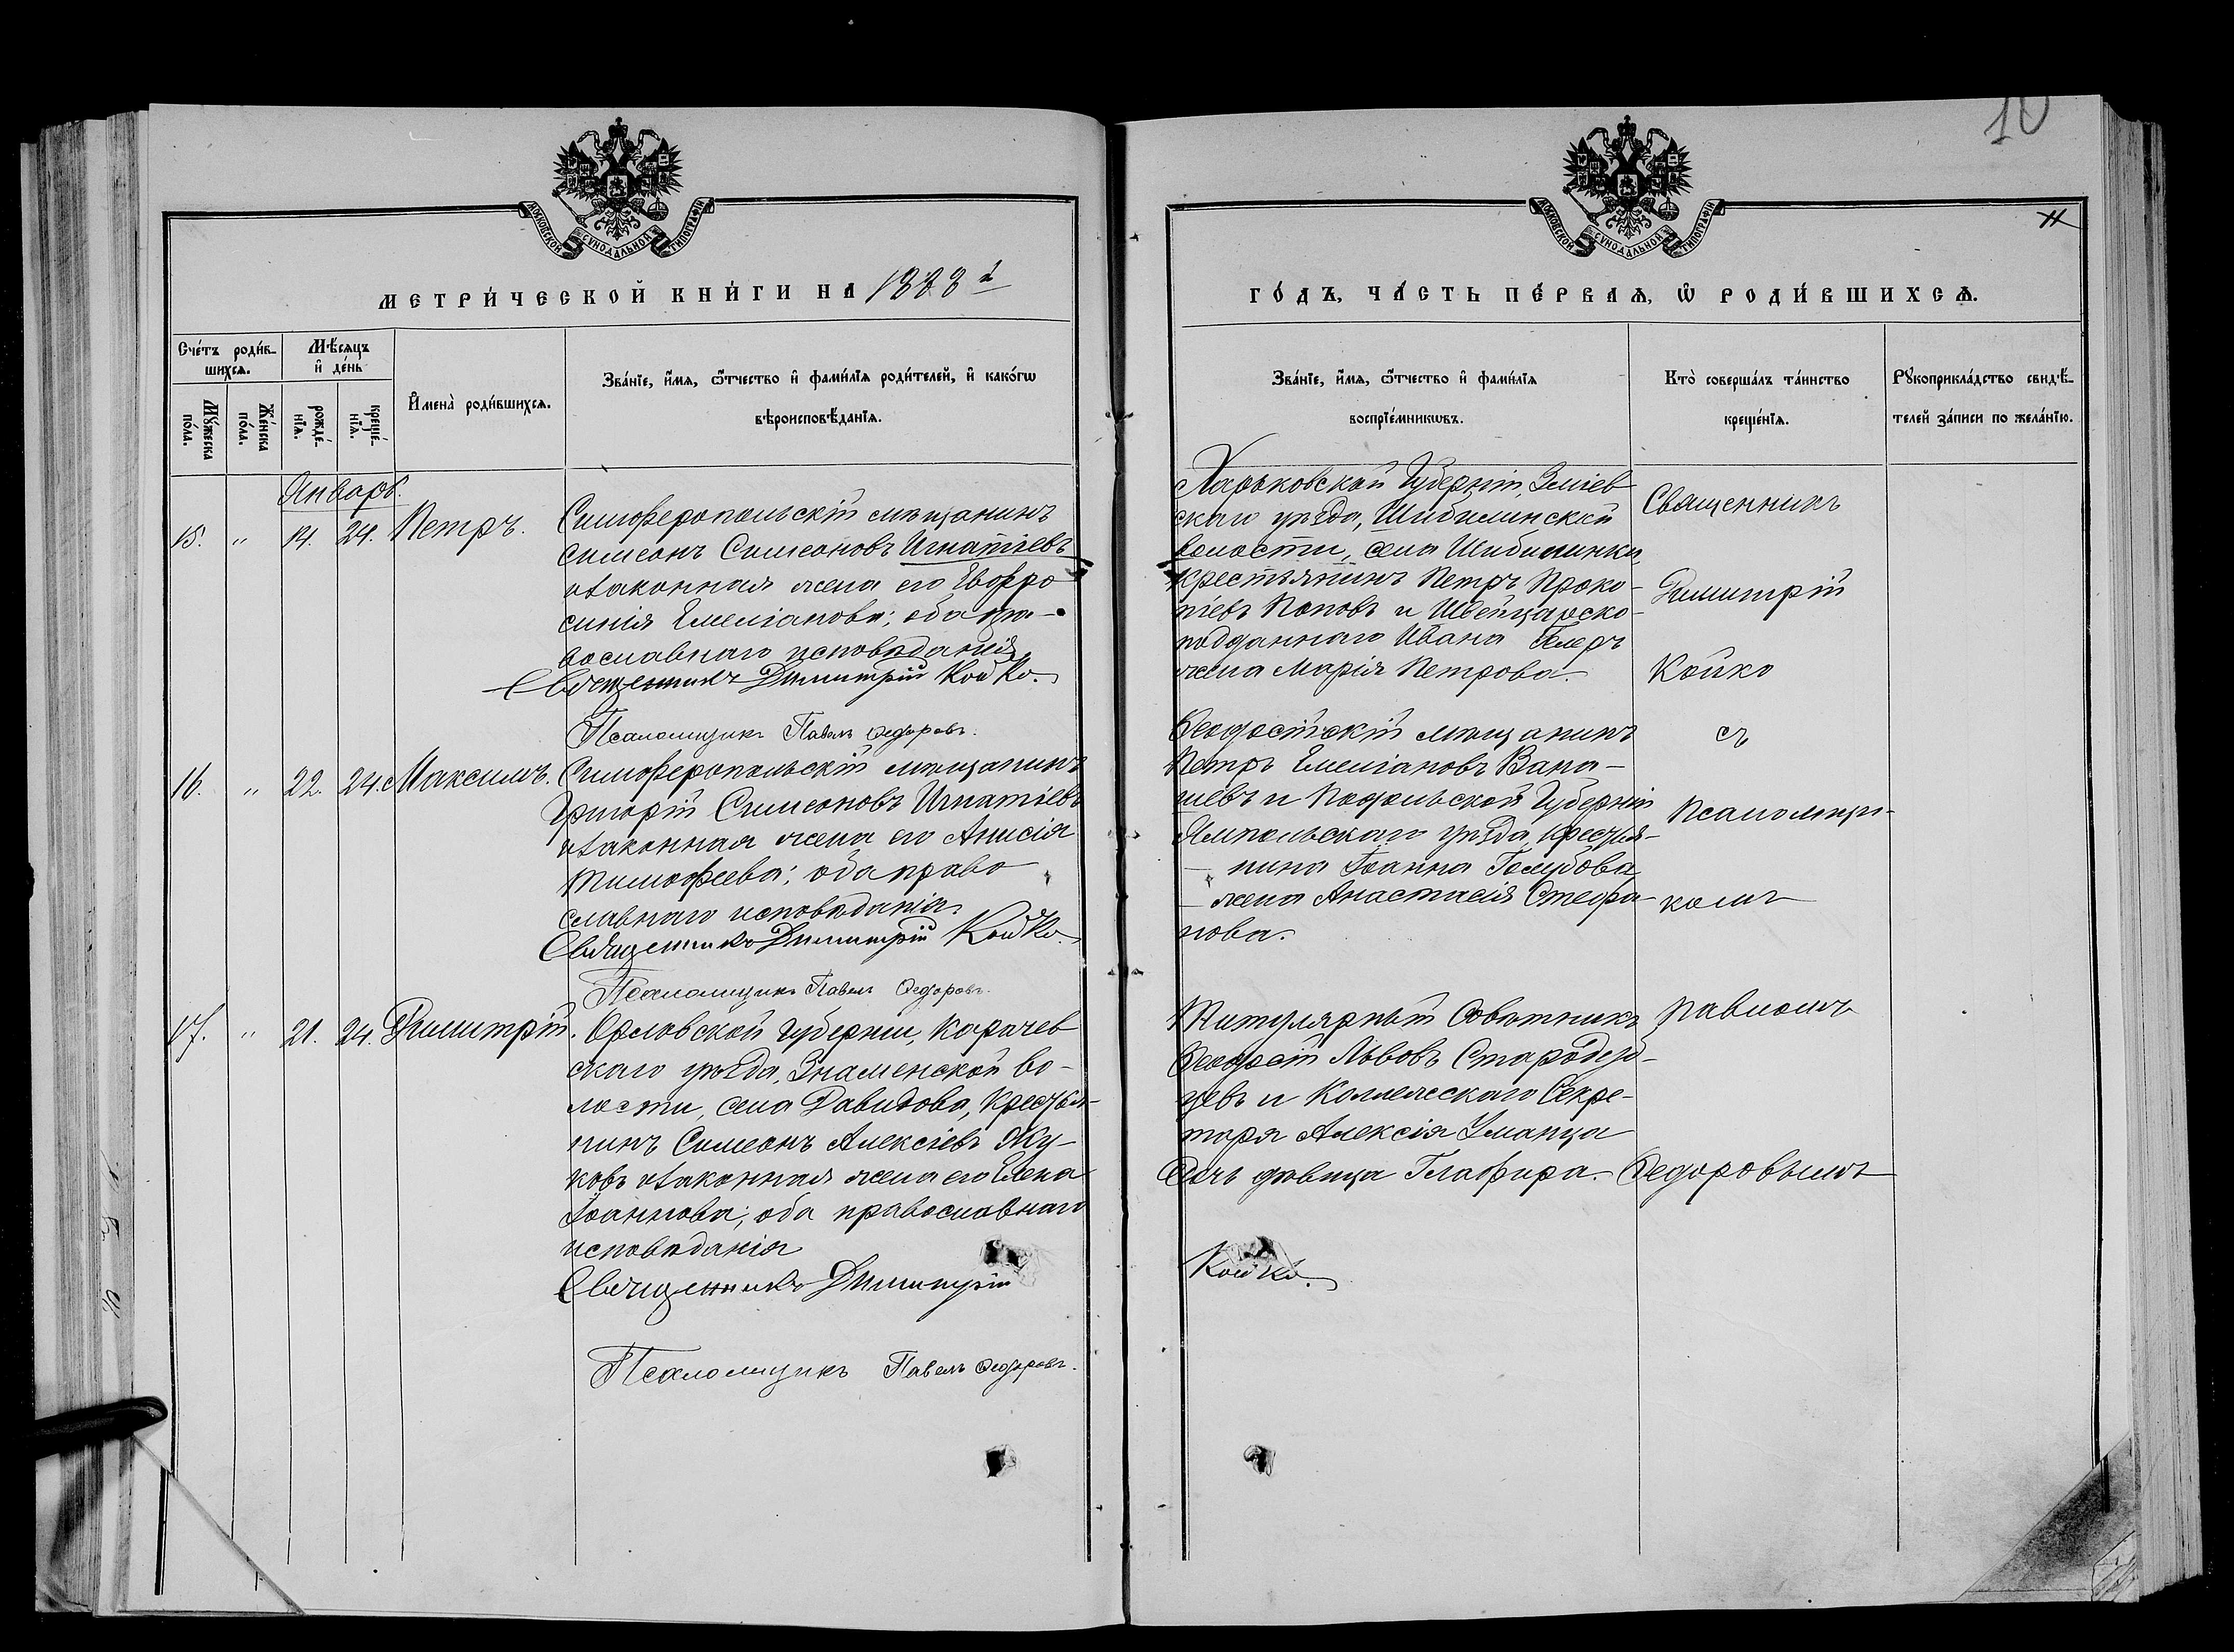 10
11
МОСКОВСКОЙ СѴНОДАЛЬНОЙ ТИПОГРАФІИ
МОСКОВСКОЙ СѴНОДАЛЬНОЙ ТИПОГРАФІИ
МЕТРИ́ЧЕСКОЙ КНИ́ГИ НА 1888 й
ГО́ДЪ, ЧА́СТЬ ПЕ́РВАѦ, Ѡ҆ РОДИ́ВШИХСѦ.
Сче́тъ роди́в-
шихсѧ.
Мѣ́сѧцъ
и҆ де́нь
Мꙋ́жеска
по́ла.
Же́нска
по́ла.
рожде́-
нїѧ.
креще́-
нїѧ.
И҆мена̀ роди́вшихсѧ.
Зва́нїе, и҆́мѧ, ѻ҆́тчество и҆ фами́лїѧ роди́телей, и҆ како́гѡ
вѣроисповѣ́данїѧ.
Зва́нїе, и҆́мѧ, ѻ҆́тчество и҆ фами́лїѧ
воспрїе́мникѡвъ.
Кто̀ соверша́лъ та́инство
креще́нїѧ.
Рꙋкоприкла́дство свидѣ́-
телей за́писи по жела́нїю.
Январь.
15. " 14. 24. Петръ.
Симферопольскій мѣщанинъ
Симеонъ Симеоновъ Игнатіевъ
и законная жена его Евфро
синія Емеліанова; оба пра-
вославнаго исповѣданія.
Священникъ Димитрій Койко.
Псаломщикъ Павелъ Ѳедоровъ.
Харьковской Губерніи, Зміев
скаго уѣзда, Шибилинской
волости, села Шибилинки,
крестьянинъ Петръ Проко-
піевъ Поповъ и Швейцарско-
подданнаго Ивана Гелеръ
жена Марія Петрова.
Священникъ
Димитрій
Койко
съ
Псаломщи-
комъ
Павломъ
Ѳедоровымъ
16. " 22. 24. Максимъ.
Симферопольскій мѣщанинъ
Григорій Симеоновъ Игнатіевъ
и законная жена его Анисія
Тимофеева; оба право
славнаго исповѣданія.
Священникъ Димитрій Койко.
Псаломщикъ Павелъ Ѳедоровъ.
Ѳеодосійскій мѣщанинъ
Петръ Емеліановъ
и Подольской Губерніи
Ямпольскаго уѣзда, крестья-
нина Іоанна Голубова
жена Анастасія Стефа-
нова.
17. " 21. 24. Димитрій.
Орловской Губерніи, Карачев
скаго уѣзда, Знаменской во-
лости, села Давидова, крестья-
нинъ Симеонъ Алексіевъ Жу-
ковъ и законная жена его Елена
Іоаннова; оба православнаго
исповѣданія
Священникъ Димитрій
Койко.
Псаломщикъ Павелъ Ѳедоровъ.
Титулярный Совѣтникъ
Ѳеодосій Львовъ
и Коллежскаго Секре-
таря Алексія Уманца
дочь дѣвица Глафира.